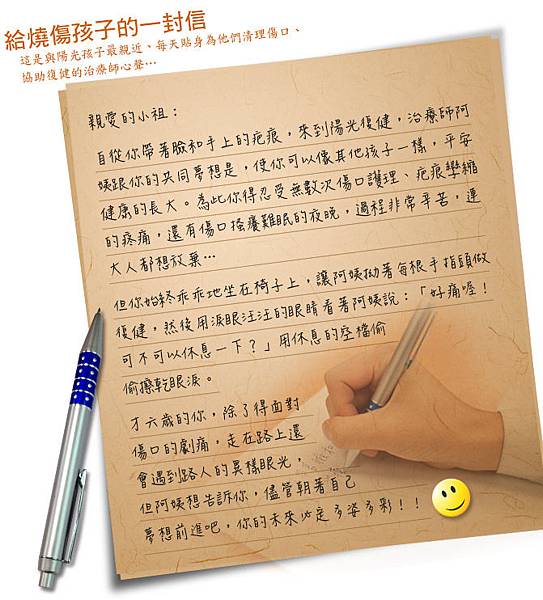 給燒傷孩子的一封信
這是與陽光孩子最親近、每天貼身為他們清理傷口、
協助復健的治療師心聲…
親愛的小祖：
自從你帶著臉和手上的疤痕，來到陽光復健，治療師阿
姨跟你的共同夢想是，使你可以像其他孩子一樣，平安
健康的長大。為此你得忍受無數次傷口護理、疤痕攣縮
的疼痛，還有傷口搔癢難眠的夜晚，過程非常辛苦，連
大人都想放棄…
但你始終乖乖地坐在椅子上，讓阿姨拗著每根手指頭做
復健，然後用淚眼汪汪的眼睛看著阿姨說：「好痛喔！
可不可以休息一下？」用休息的空檔偷
偷擦乾眼淚。
才六歲的你，除了得面對
傷口的劇痛，走在路上還
會遇到路人的異樣眼光，
但阿姨想告訴你，儘管朝著自己
夢想前進吧，你的未來必定多姿多彩！！